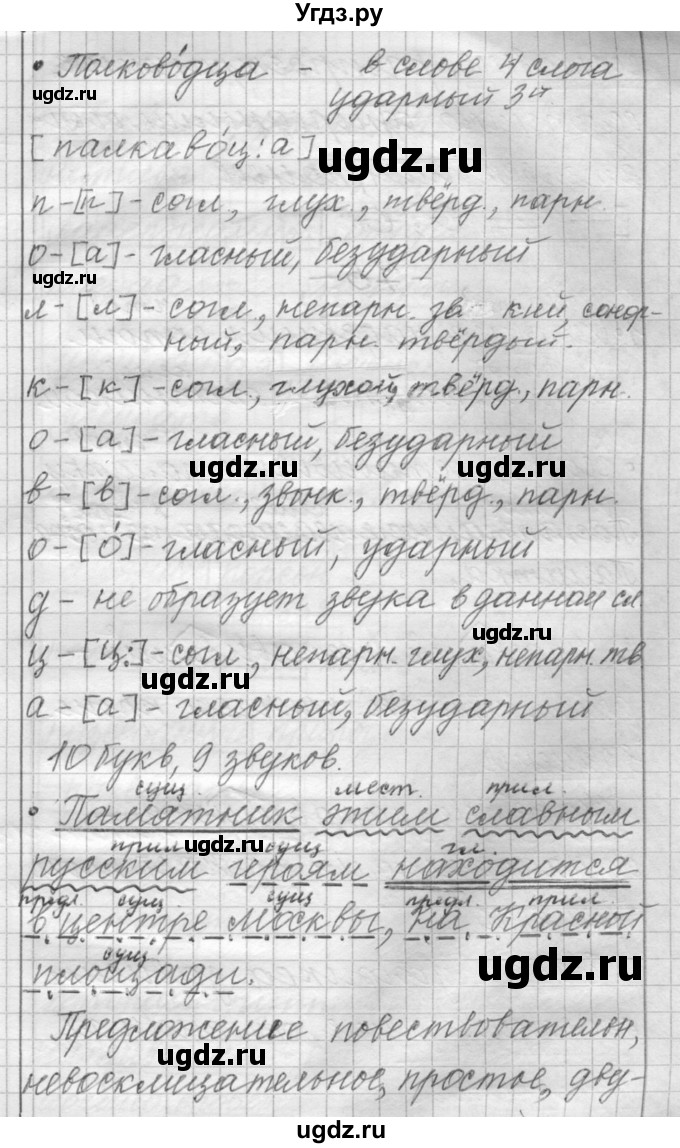 Угдз.ру
• Полково́дца - в слове 4 слога
ugdz.ru
ударный 3й
[палкаво́ц:а]
ugdz.ru
п-[п]-согл., глух., твёрд., парн.
о-[а]-гласный, безударный
ugdz.ru
ugdz.ru
л-[л]-согл., непарн. зв кий, сонор-
ный, парн. твёрдый.
к-[к]-согл., глухой, твёрд., парн.
о-[а]-гласный, безударный
ugdz.ru
ugdz.ru
в-[в]-согл., звонк., твёрд., парн.
о-[о́]-гласный, ударный
д-не образует звука в данном сл.
ugdz.ru
ц-[ц:]-согл., непарн. глух, непарн тв
ugdz.ru
а-[а]-гласный, безударный
10 букв, 9 звуков.
сущ. мест. прил.
• Памятник этим славным
прил. сущ. гл.
русским героям находится
предл. сущ. сущ. предл. прил.
в центре Москвы, на Красной
сущ.
площади.
ugdz.ru
Предложение повествовательн,
ugdz.ru
невосклицательное, простое, дву-
ugdz.ru